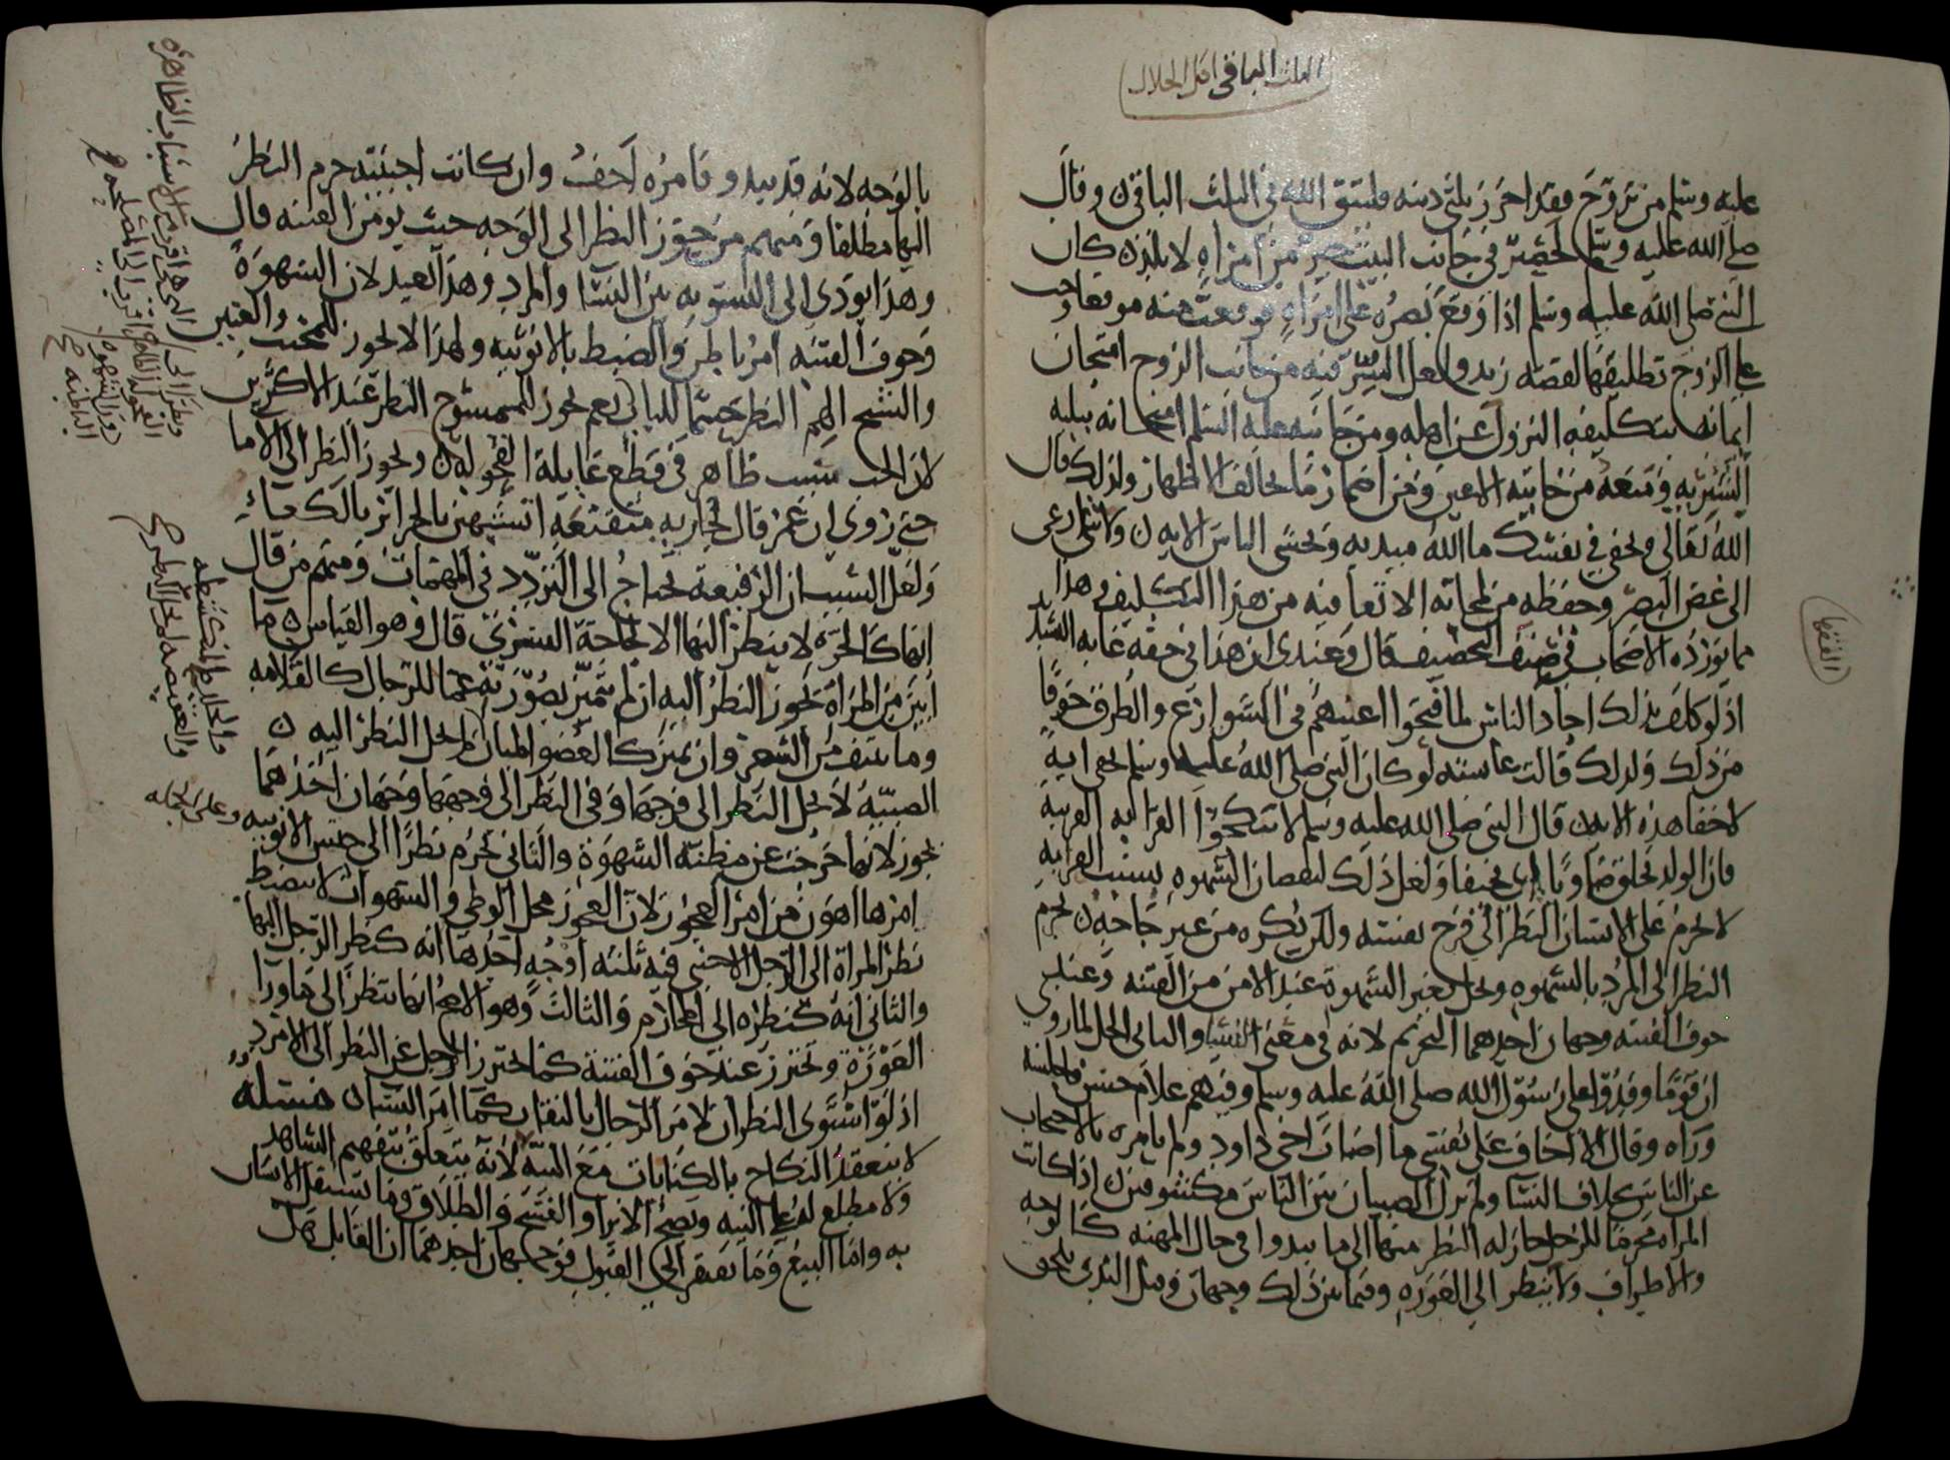 الثلث الباقي اكل الحلال
عليه وسلم من تزوج فقد احرز ثلثي دينه فليتق الله في الثلث الباقي ن وقال
صلى الله عليه وسلم لحصير في جانب البيت خير من امراه لا تلد ن كان
النبي صلى الله عليه وسلم اذا وقع بصره على امراه فوقعت منه موقعا وجب
على الزوج تطليقها لقصة زيد ولعل السر فيه من جانب الزوج امتحان
ايمانه بتكليفه النزول عن اهله ومن جانبه عليه السلم امتحانه ببليه
البشريه ومنعه من خاينه الاعين ومن اضمار ما يخالف الاظهار ولذلك قال
الله تعالى وتخفي في نفسك ما الله مبديه وتخشى الناس الايه ن ولا شي ادعى
الى غض البصر وحفظه من لمحاته الاتفاقيه من هذا التكليف وهذا
مما يورده الاصحاب في صنف التخفيف قال وعندي ان هذا في حقه غايه التشديد
اذ لو كلف بذلك احاد الناس لما فتحوا اعينهم في الشوارع والطرق خوفا
من ذلك ولذلك قالت عايشه لو كان النبي صلى الله عليه وسلم يخفي ايه
لاخفا هذه الايه ن قال النبي صلى الله عليه وسلم لا تنكحوا القرابه القريبه
فان الولد يخلق ضاويا اي نحيفا ولعل ذلك لنقصان الشهوه بسبب القرابه
لا يحرم على الانسان النظر الى فرج نفسه ولكن يكره من غير حاجه ن يحرم
النظر الى المرد بالشهوه ويحل بغير الشهوه عند الامن من الفتنه وعند
خوف الفتنه وجهان احدهما التحريم لانه في معنى النسا والثاني الحل لما روي
ان قوما وفدوا على رسول الله صلى الله عليه وسلم وفيهم غلام حسن فاجلسه
وراه وقال الا اخاف على نفسي ما اصاب اخي داود ولم يامره بالاحتجاب
عن الناس بخلاف النسا ولم تزل الصبيان بين الناس مكشوفين ن اذا كانت
المراه محرما للرجل جاز له النظر منها الى ما يبدوا في حال المهنه كالوجه
والاطراف ولا ينظر الى العوره وفيما بين ذلك وجهان وقيل الثدي يلحق
الفقها
بالوجه لانه قد يبدو وامره اخف وان كانت اجنبيه حرم النظر
اليها مطلقا ومنهم من جوز النظر الى الوجه حيث يومن الفتنه قال
وهذا يودي الى التسويه بين النسا والمرد وهذا بعيد لان الشهوة
وخوف الفتنه امر باطن والضبط بالانوثيه ولهذا لا يجوز للمخنث والعنين
والشيخ الهم النظر حسما للباب نعم يجوز للممسوح النظر عند الاكثرين
لان الجب سبب ظاهر في قطع غايلة الفحوله ن ويجوز النظر الى الاما
حتى روي ان عمر قال لجاريه متقنعه اتتشبهين بالحراير يا لكعاء
ولعل السبب ان الرقيقة تحتاج الى التردد في المهمات ومنهم من قال
انها كالحرة لا ينظر اليها الا لحاجة الشرى قال وهو القياس ن ما
ابين من المراة يجوز النظر اليه ان لم يتميز بصورته عما للرجال كالقلامه
وما ينتف من الشعر وان تميز كالعضو المبان لم يحل النظر اليه ن
الصبيه لا يحل النظر الى فرجها وفي النظر الى وجهها وجهان احدهما
يجوز لانها خرجت عن مظنة الشهوة والثاني يحرم نظرا الى جنس الانوثيه وعلى الجمله
امرها اهون من امر العجوز لان العجوز محل الوطي والشهوات لا تنضبط
نظر المراة الى الرجل الاجنبي فيه ثلثه اوجه احدها انه كنظر الرجل اليها
والثاني انه كنظره الى المحارم والثالث وهو الاصح انها تنظر الى ما ورا
العورة وتحترز عند خوف الفتنة كما يحترز الرجل عن النظر الى الامرد
اذ لو استوى النظران لامر الرجال بالنقاب كما امر النسا ن مسئلة
لا ينعقد النكاح بالكنايات مع النية لانه يتعلق بتفهيم الشاهد
ولا مطلع له على النيه ويصح الابرا والفسخ والطلاق وما يستقل الانسان
به واما البيع وما يفتقر الى القبول فوجهان احدهما ان القابل هل